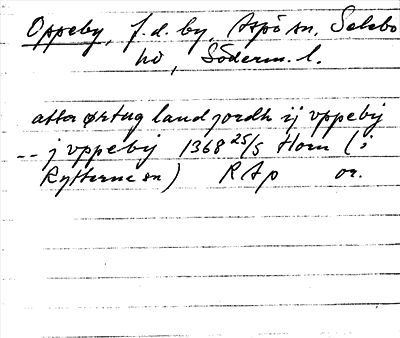 Oppeby, f.d. by, Aspö sn, Selebo
hd, Söderm. l.
atta ørtug land jordh ij vppebij
-- j vppebij 1368 25/5 Horn (i
Rytterne sn) RAp or.